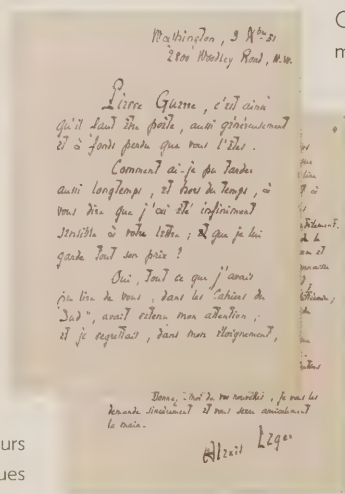 Washington, 3 Xbre 51
2800 Woodley Road, N.W.
Pierre Guerre, c'est ainsi
qu'il faut être poète, aussi généreusement
et à fonds perdu que vous l'êtes.
Comment ai-je pu tarder
aussi longtemps, et hors du temps, à
vous dire que j'ai été infiniment
sensible à votre lettre ; et que je lui
garde tout son prix ?
Oui, tout ce que j'avais
pu lire de vous, dans les "Cahiers du
Sud", avait retenu mon attention ;
et je regrettais, dans mon éloignement,
Donnez-moi de vos nouvelles, je vous les
demande sincèrement et vous serre amicalement
la main.
Alexis Leger
urs
ues